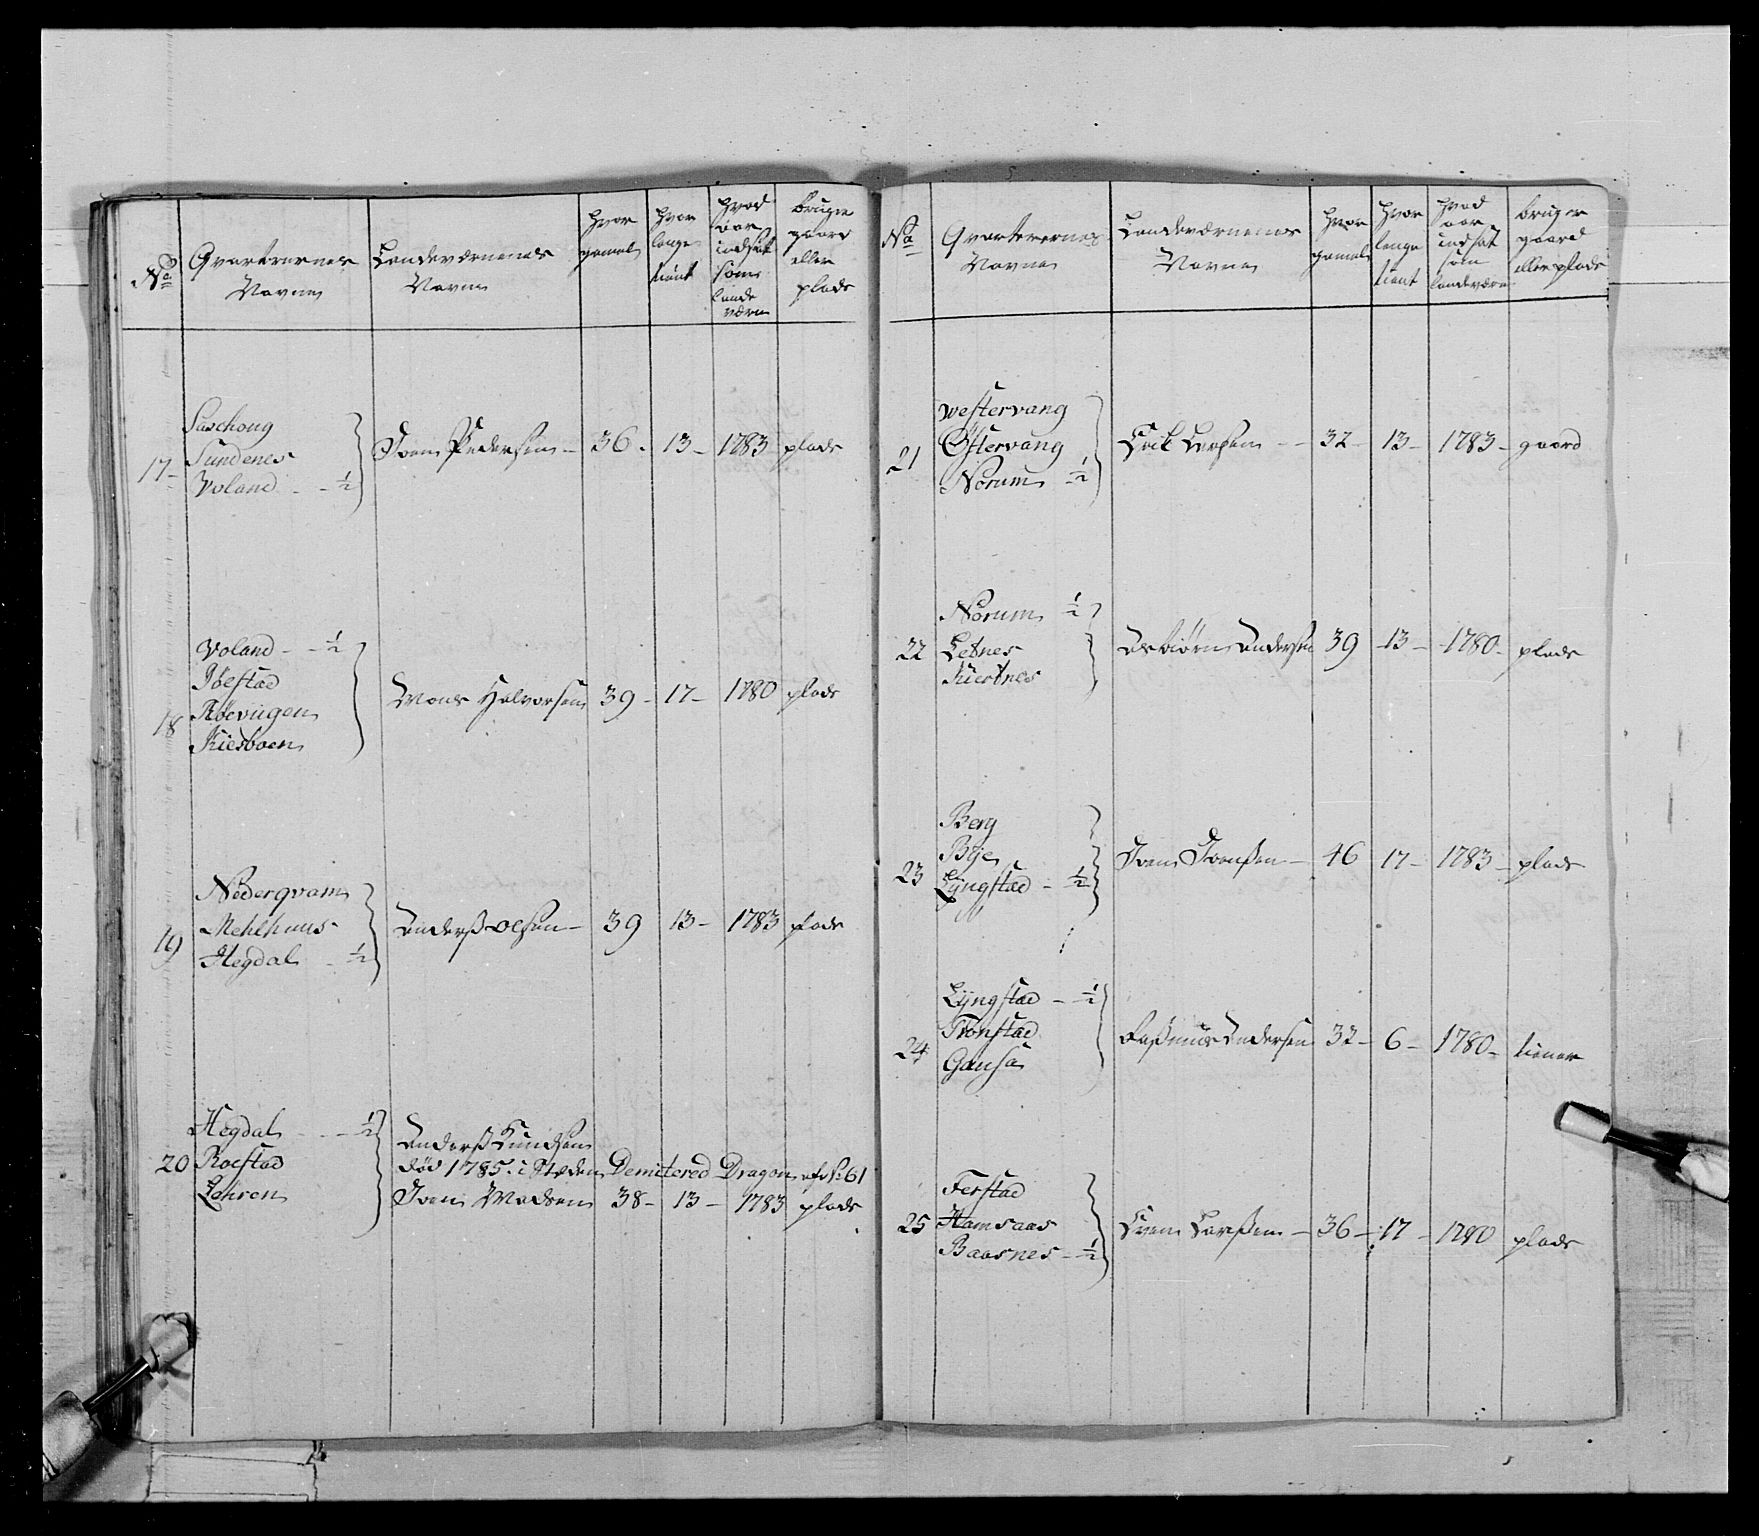 No
Qvarterernes
Navne
Landeværnenes
Navne
hvor
gamel
hvor
lenge
tient
hvad
aar
indsat
som
lande
værn
bruger
gaard
eller
plads
17
Saxhoug
Sundenes
Voland - - ½
Iver Pedersen - 36 - 13 - 1783 plads
18
Voland - - ½
Røevugen
Kiesboen
Mons Halvorsen 39 - 17 - 1780 plads
19
Nederqvam
Mehlhuus
Hegdal - ½
Anders Olsen - 39 13 - 1783 plads
20
Hegdal - - - ½
Roestad
Lehren
Anders Knudsen
død 1785. i Steden Demitered Dragon af No: 61
Iver Madsen 38 - 13 - 1783 plads
No
Qvarterernes
Navne
Landeværnenes
Navne
hvor
gamel
hvor
lenge
tient
hvad
aar
indsat
som
landeværn
bruger
gaard
eller plads
21
Westervang
Østervang
Norum - ½
Erik Larsen - - 32 - 13 - 1783 - gaard
22
Norum ½
Letnes
Kiertnes
Asbiørn Andersen 39 - 13 - 1780 - plads
23
Berg
Bye
Lyngstad - ½
Iver Iversen - 46 17 - 1783 - plads
24
Lyngstad - ½
Tronstad
Gausa
Rasmus Andersen 32 - 6 - 1780 - tiener
25
Ferstad
Hamsaas
Baasnes - ½
Sven Larsen - 36 - 17 - 1780 plads